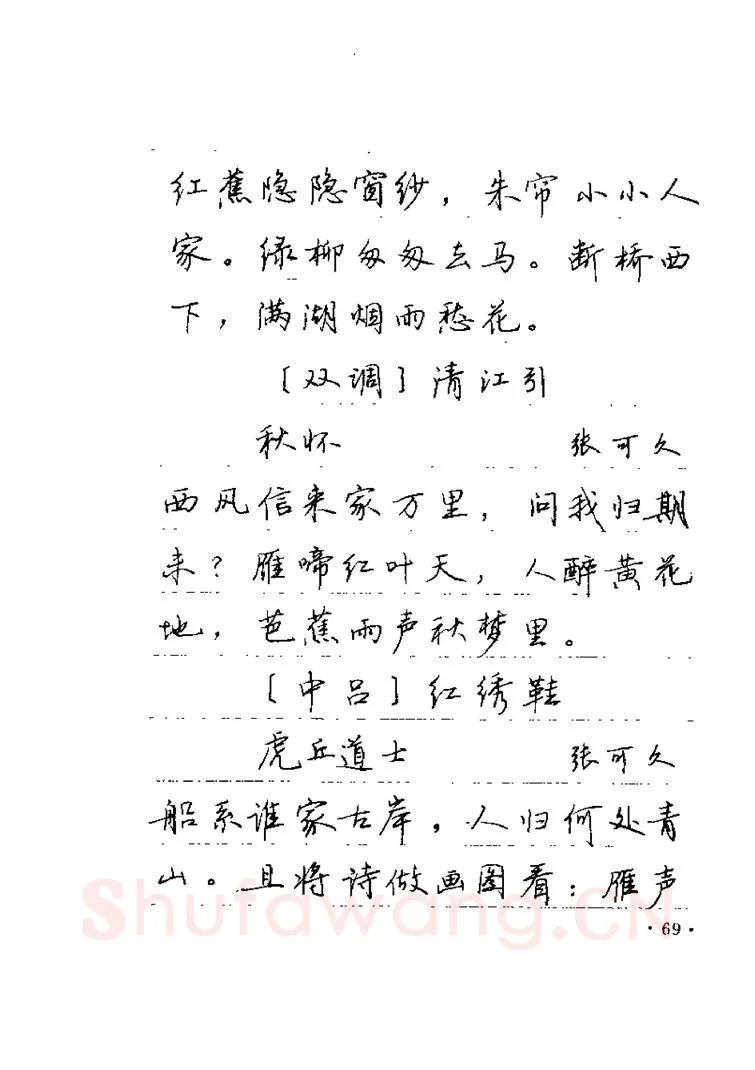 红蕉隐隐窗纱，朱帘小小人
家。绿柳匆匆去马。断桥西
下，满湖烟雨愁花。
［双调］清江引
秋怀 张可久
西风信来家万里，问我归期
未？雁啼红叶天，人醉黄花
地，芭蕉雨声秋梦里。
［中吕］红绣鞋
虎丘道士 张可久
船系谁家古岸，人归何处青
山。且将诗做画图看：雁声
Shufawang.CN
·69·